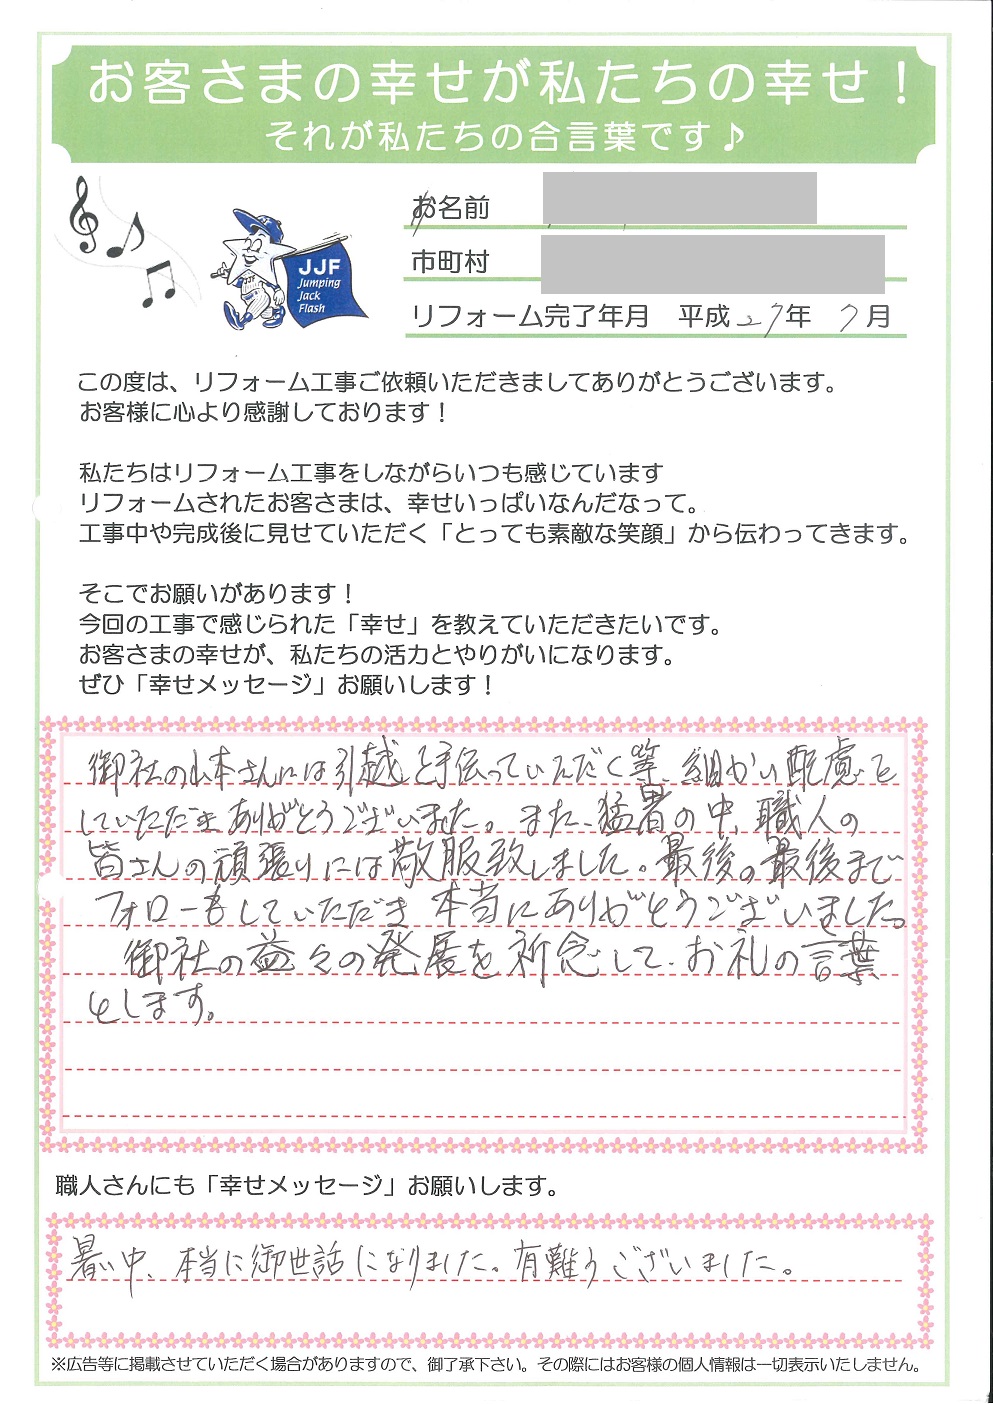 お客さまの幸せが私たちの幸せ！
それが私たちの合言葉です♪
お名前
市町村
JJF
Jumping
Jack
Flash
JJF
リフォーム完了年月　平成27年　7月
この度は、リフォーム工事ご依頼いただきましてありがとうございます。
お客様に心より感謝しております！
私たちはリフォーム工事をしながらいつも感じています
リフォームされたお客さまは、幸せいっぱいなんだなって。
工事中や完成後に見せていただく「とっても素敵な笑顔」から伝わってきます。
そこでお願いがあります！
今回の工事で感じられた「幸せ」を教えていただきたいです。
お客さまの幸せが、私たちの活力とやりがいになります。
ぜひ「幸せメッセージ」お願いします！
御社の山本さんには引越を手伝っていただく等、細かい配慮を
していただきありがとうございました。また、猛暑の中、職人の
皆さんの頑張りには敬服致しました。最後の最後まで
フォローもしていただき本当にありがとうございました。
御社の益々の発展を祈念して、お礼の言葉
とします。
職人さんにも「幸せメッセージ」お願いします。
暑い中、本当に御世話になりました。有難うございました。
※広告等に掲載させていただく場合がありますので、御了承下さい。その際にはお客様の個人情報は一切表示いたしません。